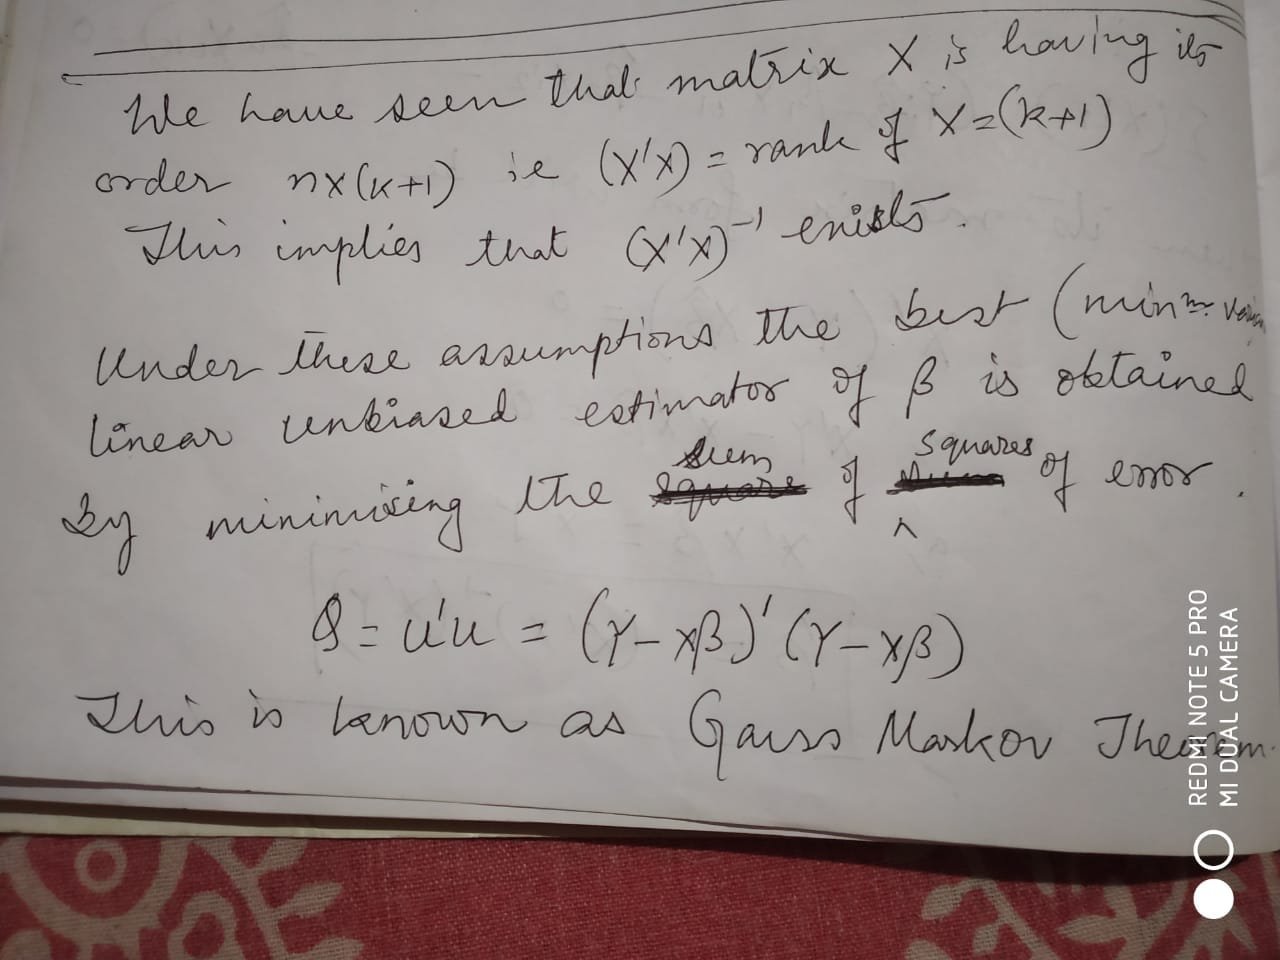 We have seen that matrix X is having its
order n×(k+1) ie (X'X) = rank of X=(k+1)
This implies that (X'X)⁻¹ exists.
Under these assumptions the best (minm.
linear unbiased estimator of β is obtained
By minimising the sum of squares of error.
Q = u'u = (Y-Xβ)' (Y-Xβ)
This is known as Gauss Markov Theorem.
REDMI NOTE 5 PRO
MI DUAL CAMERA